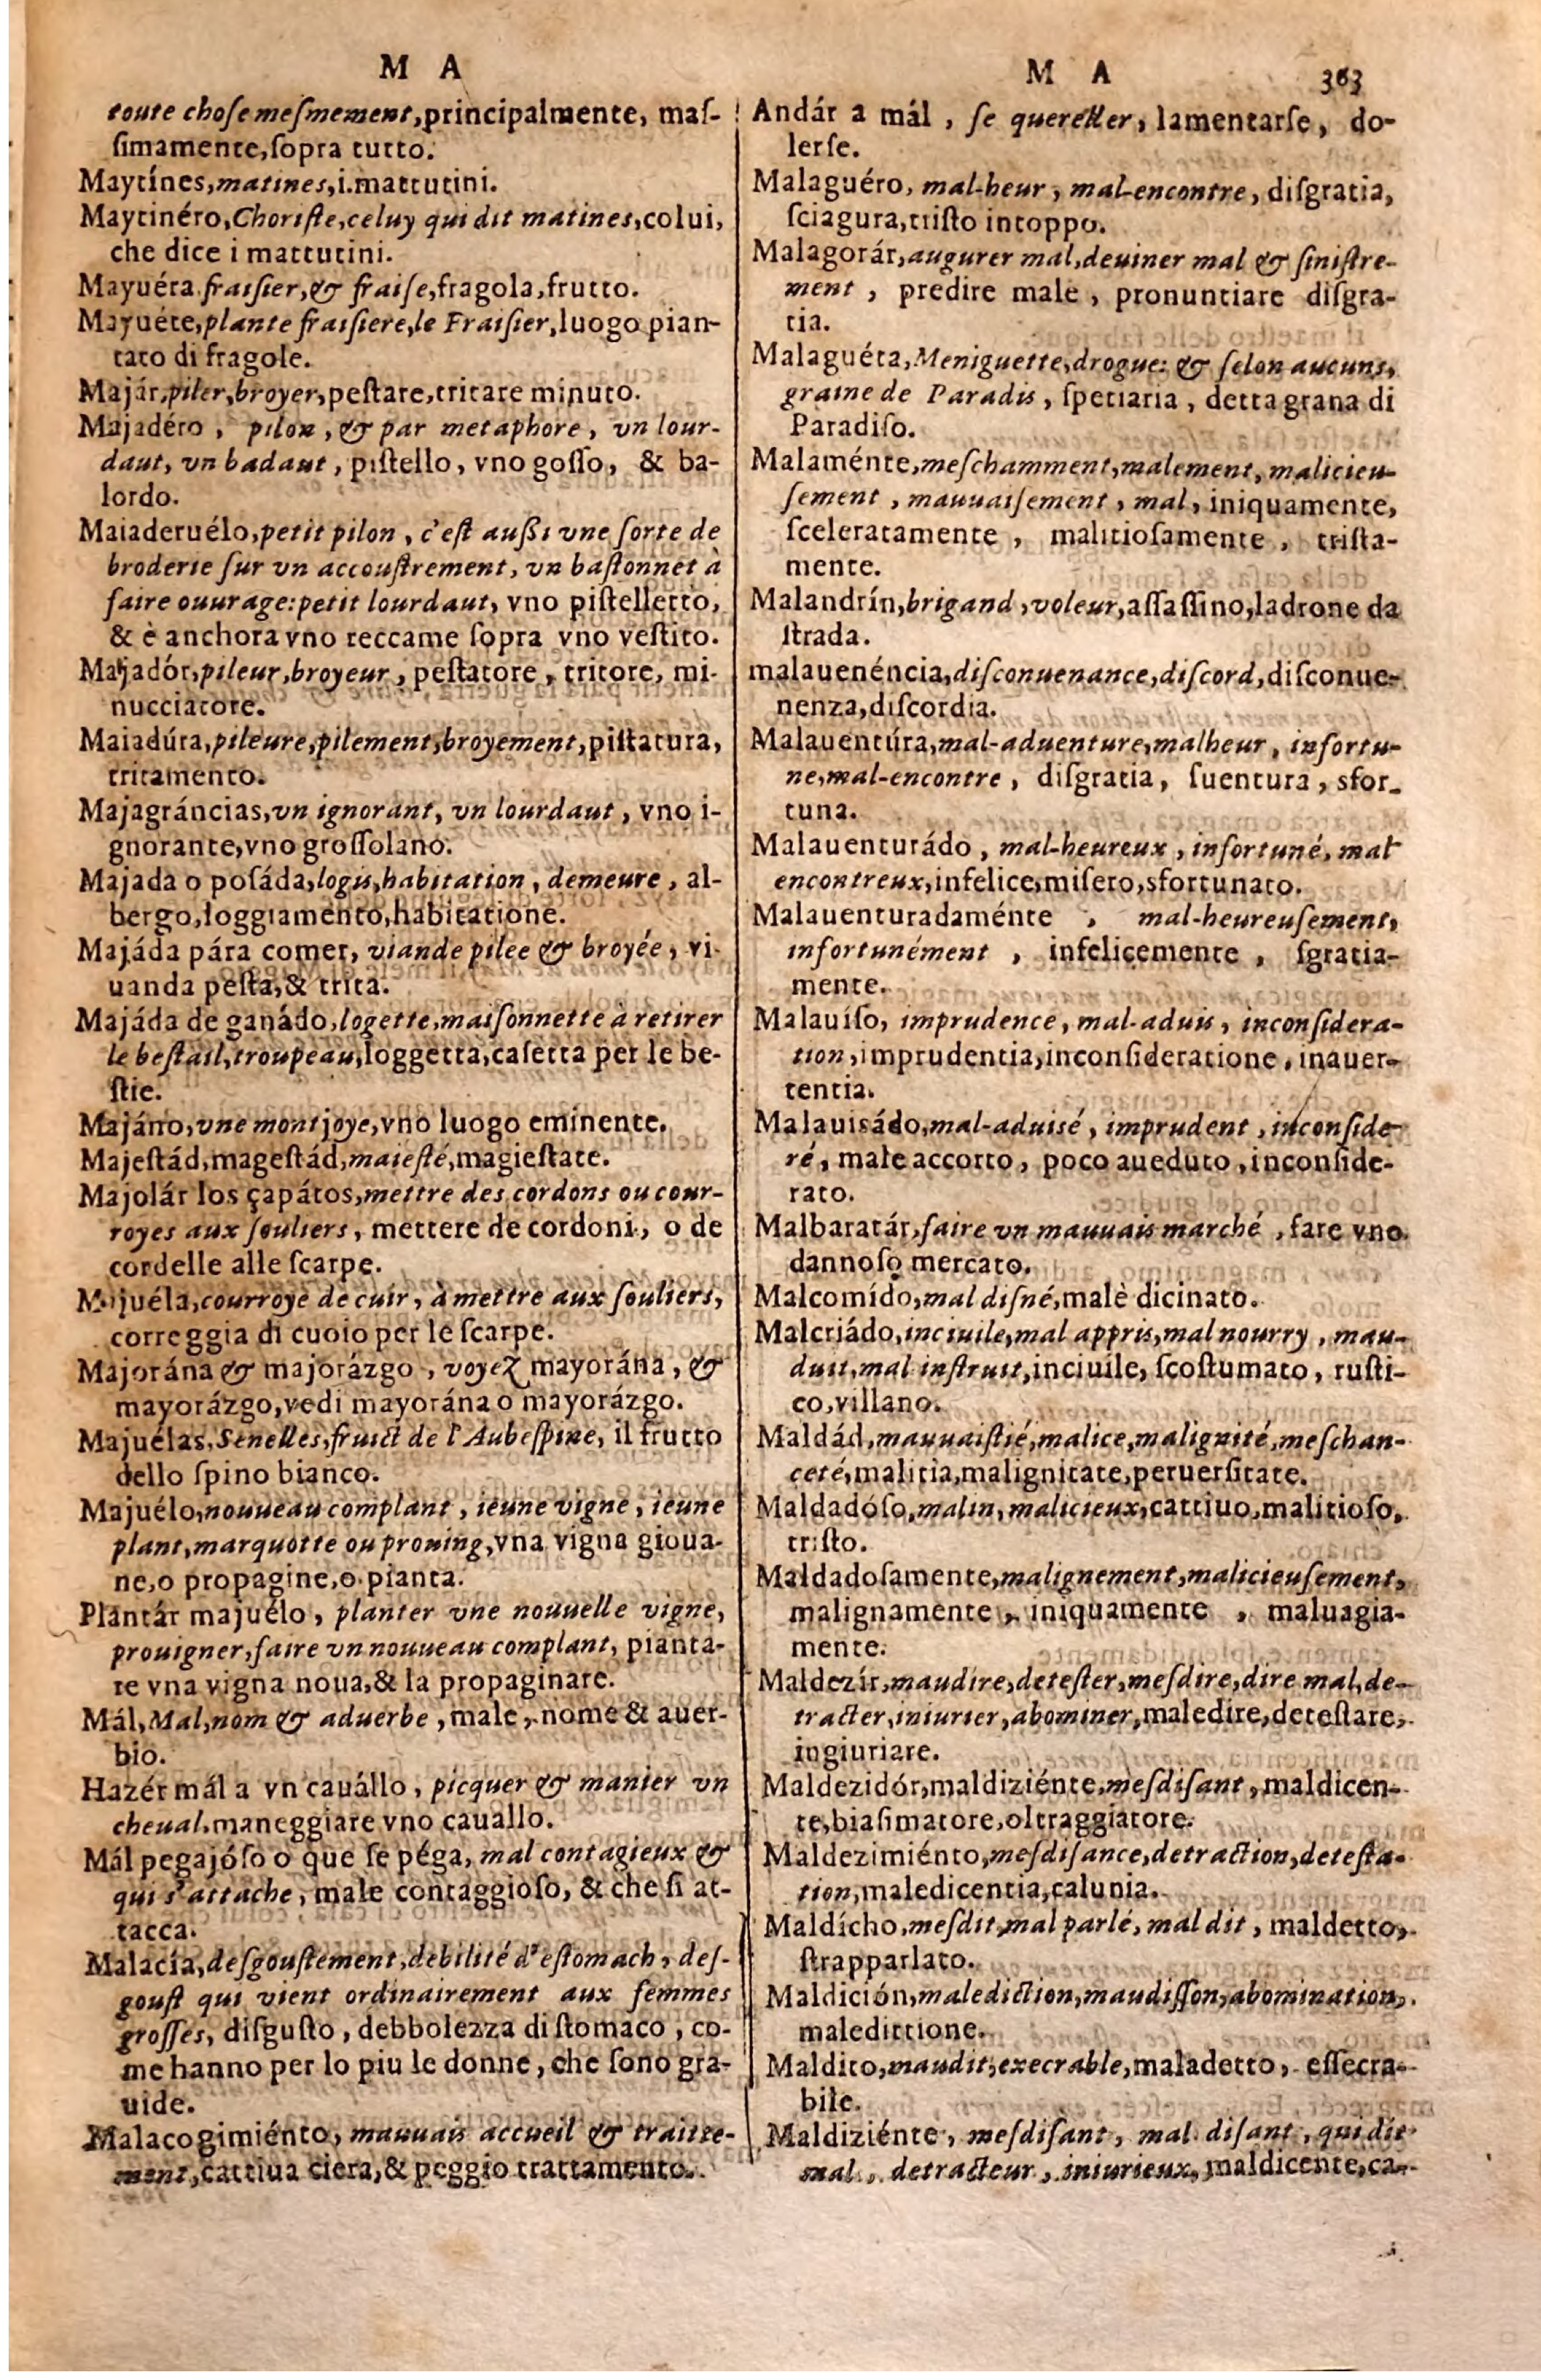 M A
toute choſe meſmement, principalmente, maſ-
ſimamente, ſopra tutto.
Maytínes, matines, i. mattutini.
Maytinéro, Choriſte, celuy qui dit matines, colui,
che dice i mattutini.
Mayuéra. fraiſier, & fraiſe, fragola, frutto.
Mayuéte, plante fraiſiere, le Fraiſier, luogo pian-
tato di fragole.
Majár, piler, broyer, peſtare, tritare minuto.
Majadéro , pilon , & par metaphore , vn lour-
daut, vn badaut , piſtello , vno goſſo , & ba-
lordo.
Maiaderuélo, petit pilon , c'eſt außi vne ſorte de
broderie ſur vn accouſtrement, vn baſtonnet à
faire ouurage: petit lourdaut, vno piſtelletto,
& è anchora vno reccame ſopra vno veſtito.
Majadór, pileur, broyeur , peſtatore , tritore, mi-
nucciatore.
Maiadúra, pileure, pilement, broyement, piſtatura,
tritamento.
Majagráncias, vn ignorant, vn lourdaut , vno i-
gnorante, vno groſſolano.
Majada o poſáda, logis, habitation , demeure , al-
bergo, loggiamento, habitatione.
Majáda pára comer, viande pilee & broyée , vi-
uanda peſta, & trita.
Majáda de ganádo, logette, maiſonnette à retirer
le beſtail, troupeau, loggetta, caſetta per le be-
ſtie.
Majáno, vne montjoye, vno luogo eminente.
Majeſtád, mageſtád, maieſté, magieſtate.
Majolár los çapátos, mettre des cordons ou cour-
royes aux ſouliers , mettere de cordoni , o de
cordelle alle ſcarpe.
Majuéla, courroye de cuir , à mettre aux ſouliers,
correggia di cuoio per le ſcarpe.
Majorána & majorázgo , voyez mayorána , &
mayorázgo, vedi mayorána o mayorázgo.
Majuélas, Senelles, fruict de l'Aubeſpine, il frutto
dello ſpino bianco.
Majuélo, nouueau complant , ieune vigne , ieune
plant, marquotte ou proning, vna vigna gioua-
ne, o propagine, o pianta.
Plantár majuélo , planter vne nouuelle vigne,
prouigner, faire vn nouueau complant, pianta-
re vna vigna noua, & la propaginare.
Mál, Mal, nom & aduerbe , male , nome & auer-
bio.
Hazér mál a vn cauállo , picquer & manier vn
cheual, maneggiare vno cauallo.
Mál pegajóſo o que ſe péga, mal contagieux &
qui s'attache , male contaggioſo, & che ſi at-
tacca.
Malacía, deſgouſtement, debilité d'eſtomach , deſ-
gouſt qui vient ordinairement aux femmes
groſſes, diſguſto , debbolezza di ſtomaco , co-
me hanno per lo piu le donne , che ſono gra-
uide.
Malacogimiénto, mauuais accueil & traitte-
ment, cattiua ciera, & peggio trattamento.
M A 363
Andár a mál , ſe quereller, lamentarſe, do-
lerſe.
Malaguéro, mal-heur , mal-encontre, diſgratia,
ſciagura, triſto intoppo.
Malagorár, augurer mal, deuiner mal & ſiniſtre-
ment , predire male , pronuntiare diſgra-
tia.
Malaguéta, Meniguette, drogue: & ſelon aucuns,
graine de Paradis , ſpetiaria , detta grana di
Paradiſo.
Malaménte, meſchamment, malement, malicieu-
ſement , mauuaiſement , mal, iniquamente,
ſceleratamente , malitioſamente , triſta-
mente.
Malandrín, brigand , voleur, aſſaſſino, ladrone da
ſtrada.
malauenéncia, diſconuenance, diſcord, diſconue-
nenza, diſcordia.
Malauentúra, mal-aduenture, malheur , infortu-
ne, mal-encontre , diſgratia , ſuentura , sfor-
tuna.
Malauenturádo , mal-heureux , infortuné, mal
encontreux, infelice, miſero, sfortunato.
Malauenturadaménte , mal-heureuſement,
infortunément , infelicemente , ſgratia-
mente.
Malauíſo, imprudence, mal-aduis , inconſidera-
tion, imprudentia, inconſideratione , inauer-
tentia.
Malauisádo, mal-aduisé , imprudent , inconſide-
ré , male accorto , poco aueduto , inconſide-
rato.
Malbaratár, faire vn mauuais marché , fare vno
dannoſo mercato.
Malcomído, mal diſné, malè dicinato.
Malcriádo, inciuile, mal appris, mal nourry , mau-
duit, mal inſtruit, inciuile, ſcoſtumato , ruſti-
co, villano.
Maldád, mauuaiſtié, malice, malignité, meſchan-
ceté, malitia, malignitate, peruerſitate.
Maldadóſo, malin, malicieux, cattiuo, malitioſo,
triſto.
Maldadoſamente, malignement, malicieuſement,
malignamente , iniquamente , maluagia-
mente.
Maldezír, maudire, deteſter, meſdire, dire mal, de-
tracter, iniurier, abominer, maledire, deteſtare,
ingiuriare.
Maldezidór, maldiziénte, meſdiſant , maldicen-
te, biaſimatore, oltraggiatore.
Maldezimiénto, meſdiſance, detraction, deteſta-
tion, maledicentia, calunia.
Maldícho, meſdit, mal parlé, mal dit , maldetto,
ſtrapparlato.
Maldición, malediction, maudiſſon, abomination,
maledittione.
Maldito, maudit, execrable, maladetto , eſſecra-
bile.
Maldiziénte , meſdiſant , mal diſant , qui dit
mal , detracteur , iniurieux, maldicente, ca-